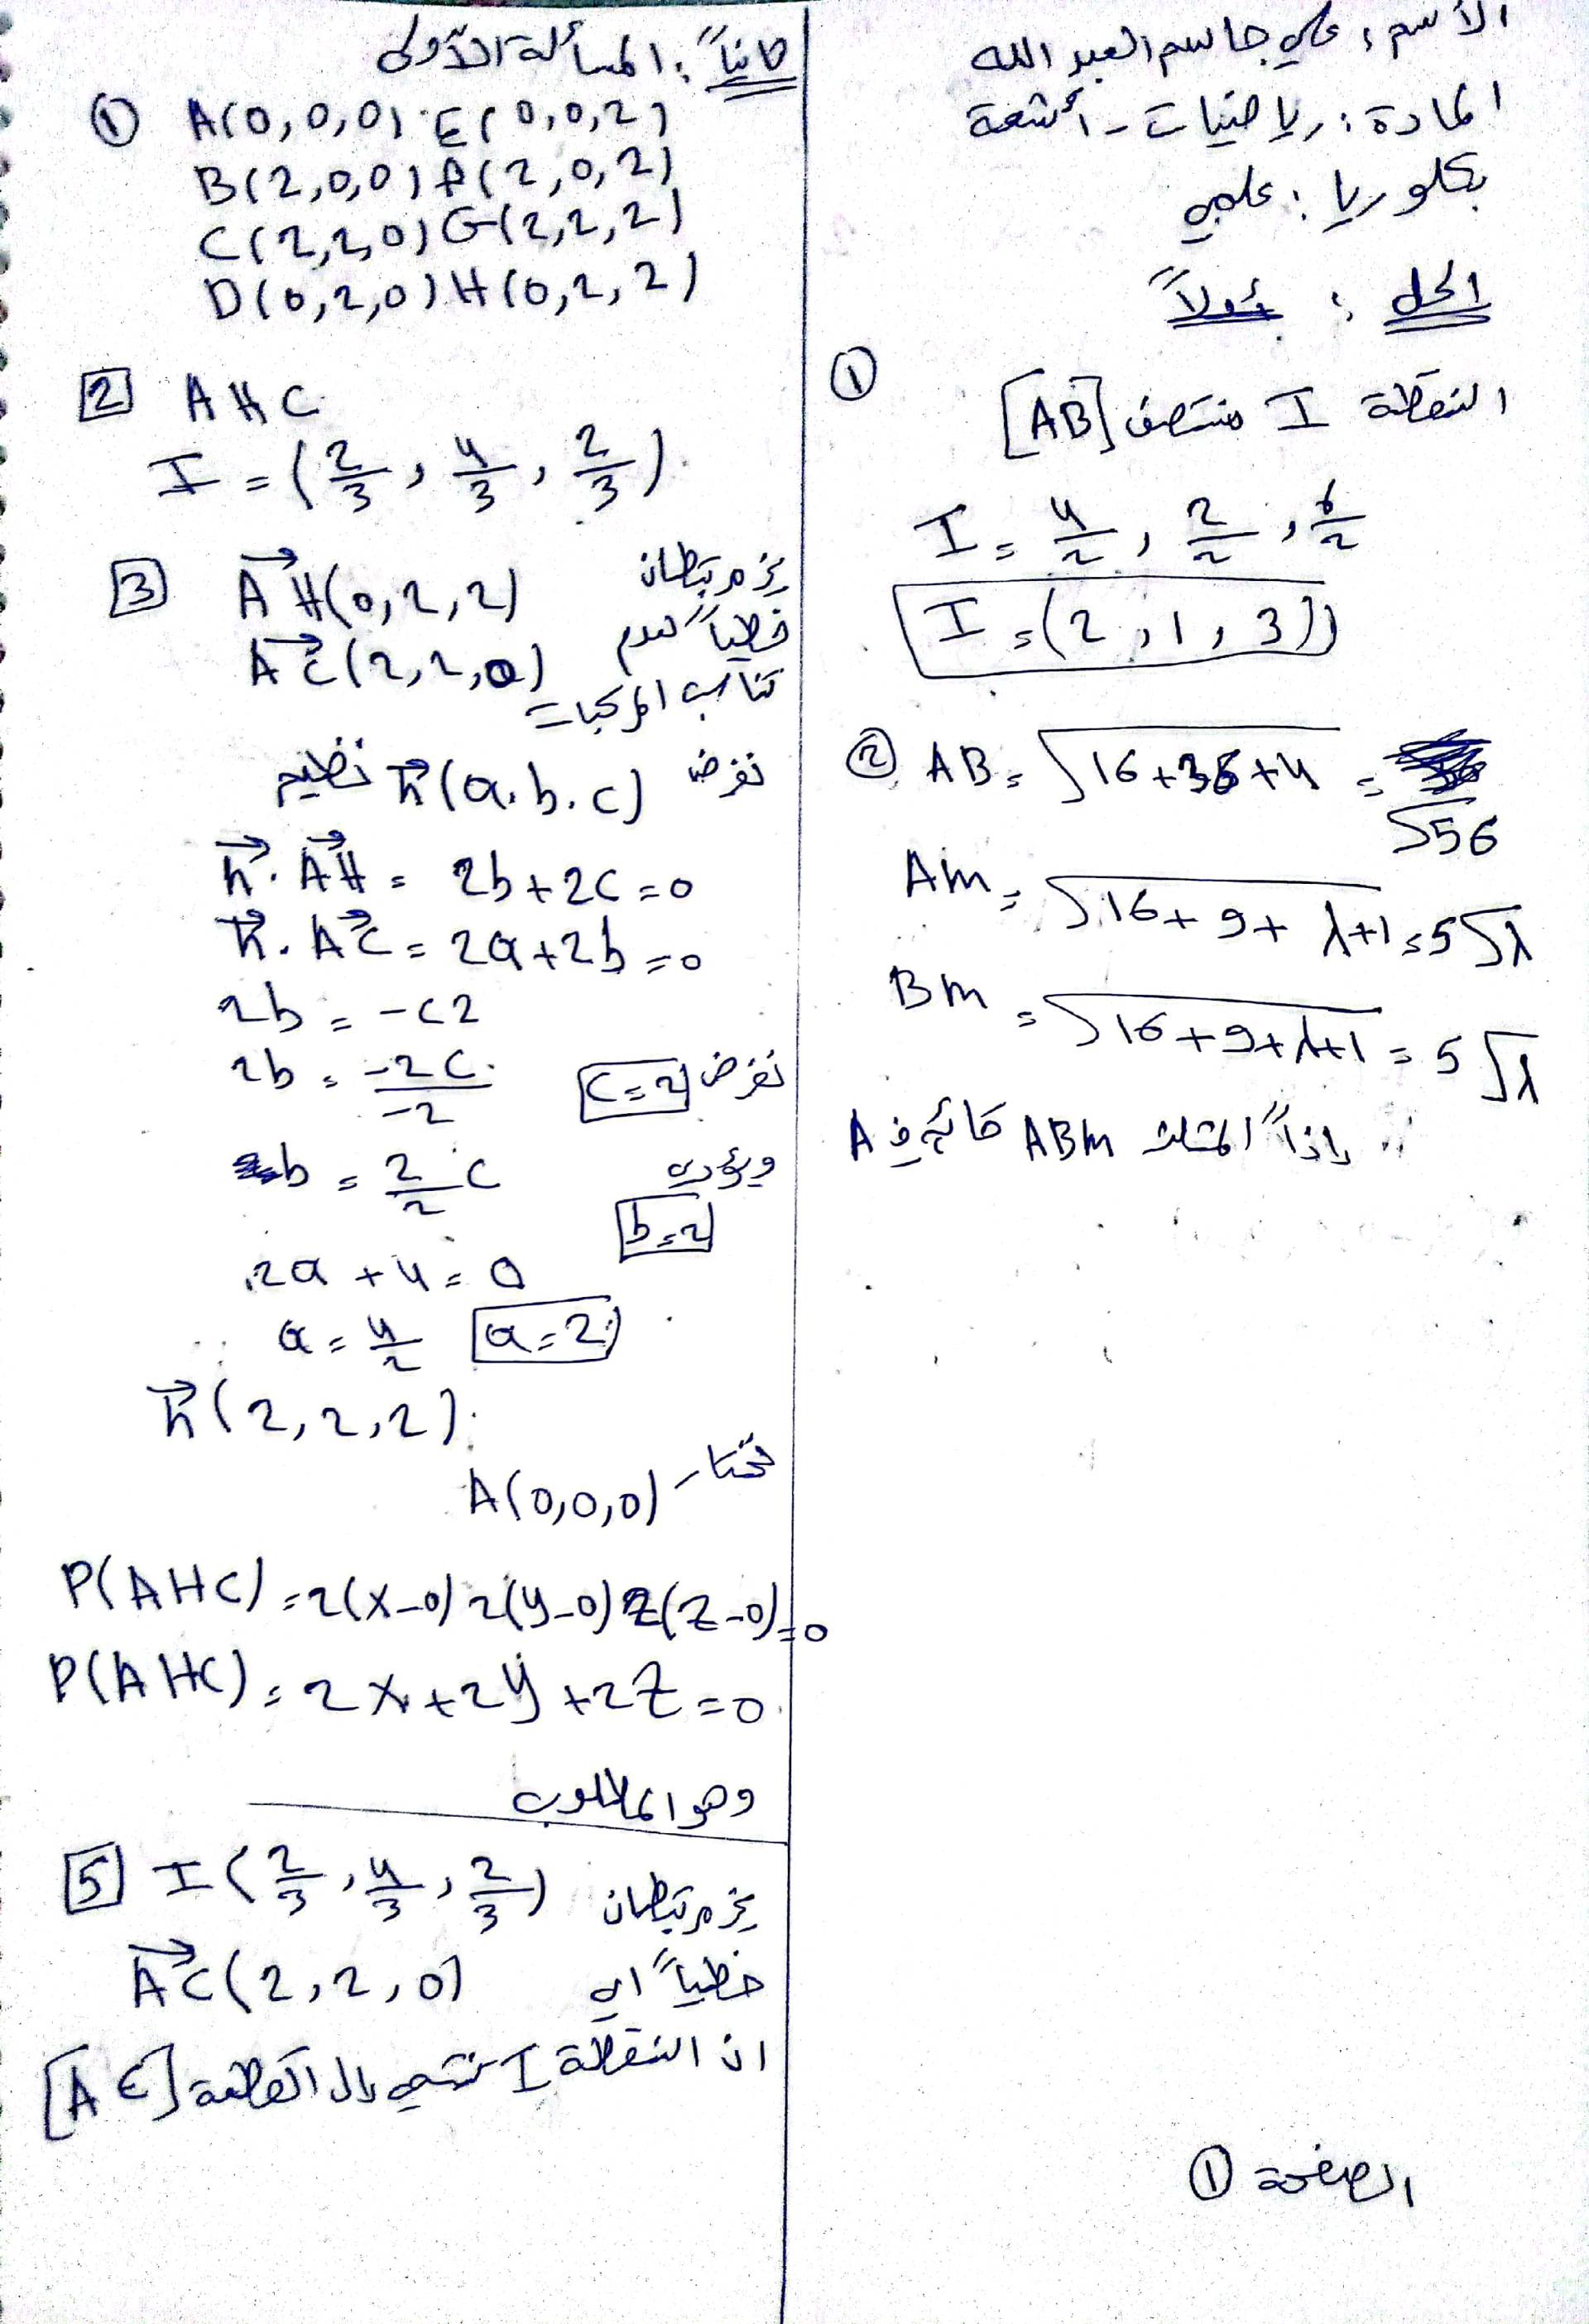 الأسم : علي جاسم العبد الله
المادة : رياضيات - أشعة
بكلوريا : علمي
الحل : أولاً
①
النقطة I منتصف [AB]
I = 4/2 , 2/2 , 6/2
I = (2 , 1 , 3)
② AB = √16+36+4 =
√56
AM = √16+9+λ+1 = 5√λ
BM = √16+9+λ+1 = 5√λ
إذاً المثلث ABM قائم في A
الصفحة ①
ثانياً : المسألة الأولى
① A(0,0,0) E(0,0,2)
B(2,0,0) F(2,0,2)
C(2,2,0) G(2,2,2)
D(0,2,0) H(0,2,2)
2 AHC
I = (2/3 , 4/3 , 2/3)
3 AH(0,2,2) غير مرتبطان
AC(2,2,0) خطياً لعدم
تناسب المركبات
نفرض n(a.b.c) نظيم
n.AH = 2b+2c=0
n.AC = 2a+2b=0
2b = -c2
2b = -2c/-2 نفرض c=2
b = 2/2 c ويؤدي
b=2
2a+4=0
a = 4/2 a=2
n(2,2,2)
نختار A(0,0,0)
P(AHC) = 2(x-0) 2(y-0) 2(z-0)=0
P(AHC) = 2x+2y+2z=0
وهو المطلوب
5 I(2/3 , 4/3 , 2/3) غير مرتبطان
AC(2,2,0) خطياً اي
ان النقطة I تنتمي الى القطعة [AC]